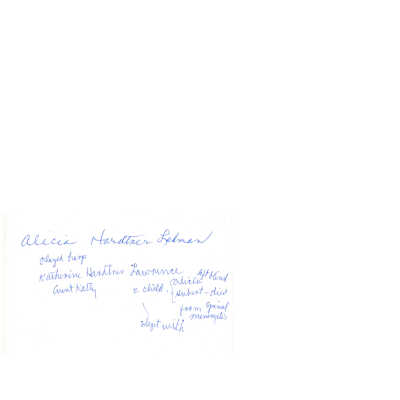 Alicia Hardtner Lehman
Played harp
Katherine Hardtner Lawrence
Aunt Katty
2 child.
left hand
Hubert - died
from Spinal
meningitis
slept with